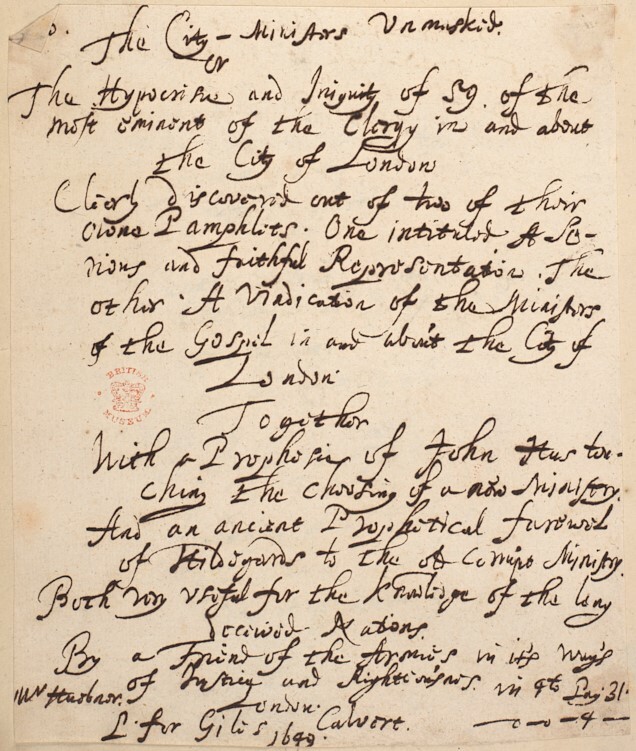 The City-Ministers Unmasked.
or
The Hypocrisie and Iniquity of 59 of the
most eminent of the Clergy in and about
the City of London
Cleerly discovered out of two of their
owne Pamphlets. One intituled A Se-
rious and faithful Representation. The
other A Vindication of the Ministers
of the Gospel in and about the City of
London
BRITISH MUSEUM
Together
With a Prophesie of John Hus tou-
ching the choosing of a new Ministry.
And an ancient Prophetical farewel
of Hildegards to the old Corrupt Ministry.
Both very useful for the knowledge of the long
deceived Nations.
By a Friend of the Armies in its ways
of Justice and Righteousnes. in 4to Pag. 31.
Mr Huebner.
London
P. for Giles Calvert.
1649.